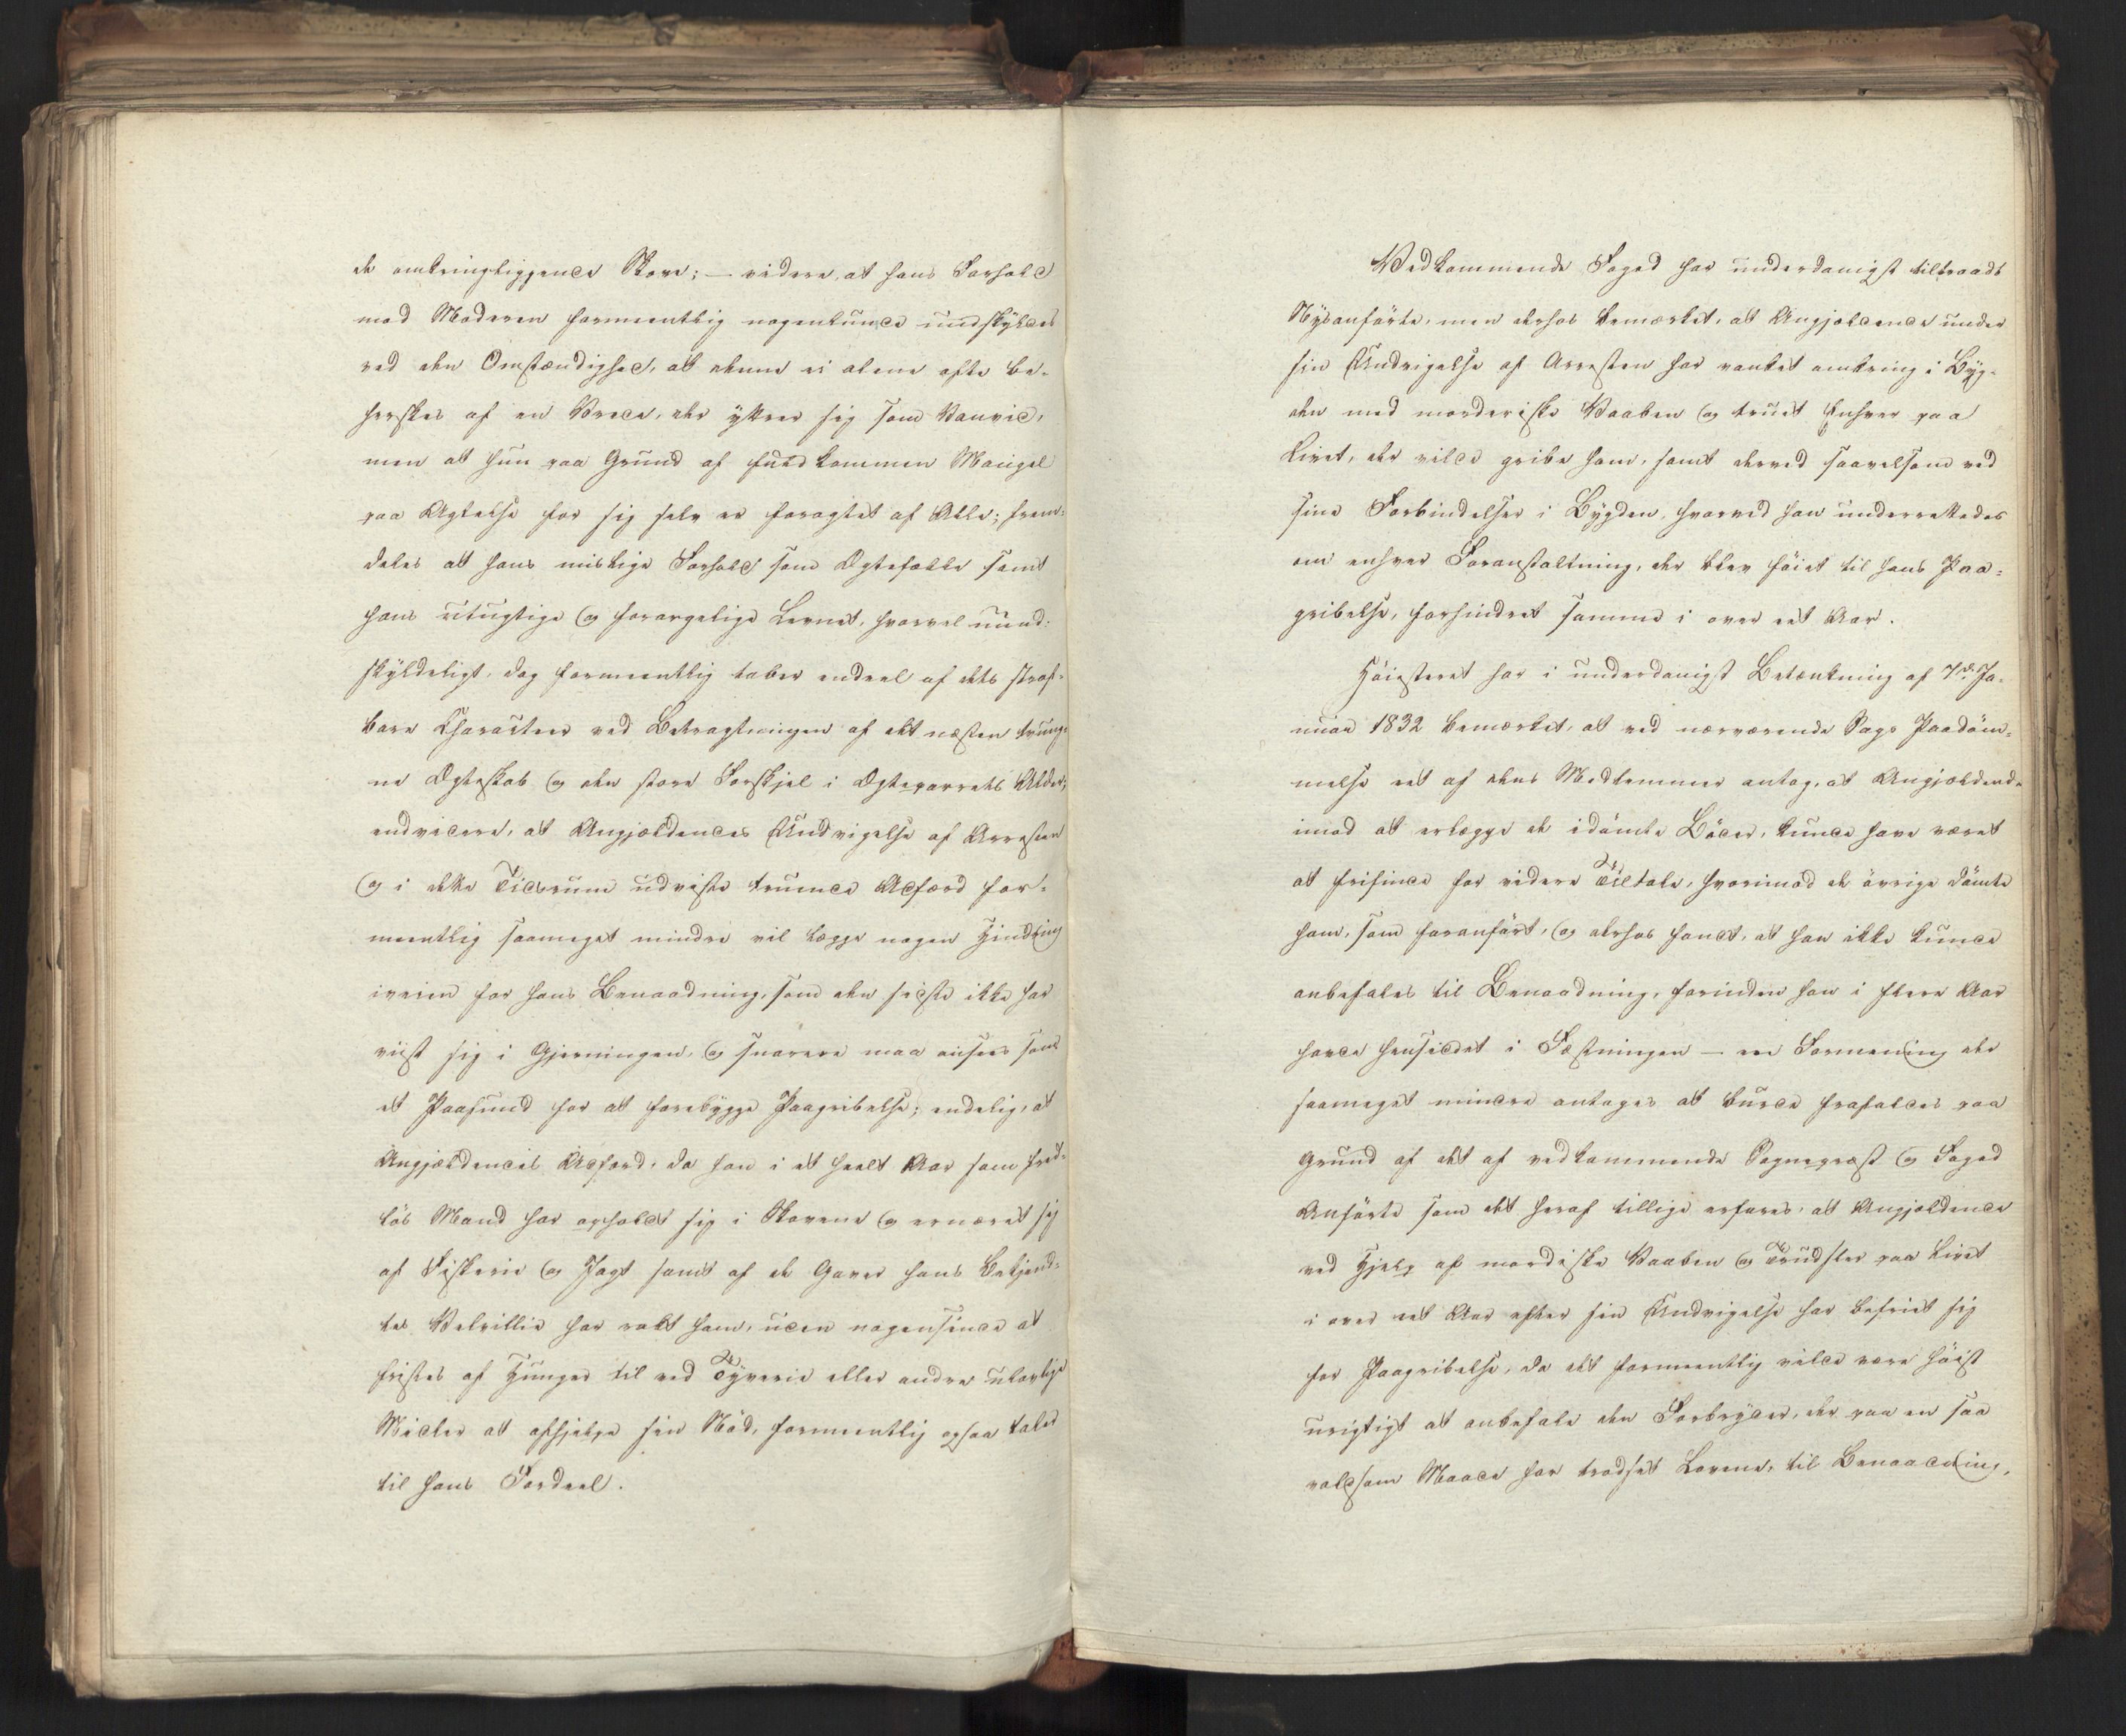 de omkringliggende Skove; — videre, at hans Forhold
mod Moderen formeentlig nogenlunde undskyldes
ved den Omstændighed, at denne ei alene ofte be-
herskes af en Vrede, der yttrer sig som Vanvid,
men at hun paa Grund af fuldkommen Mangel
paa Agtelse for sig selv er foragtet af Alle; frem-
deles at hans mislige Forhold som Ægtefælle samt
hans utugtige og forargelige Levnet, hvorvel uund-
skyldeligt, dog formeentlig taber endeel af dets straf-
bare Charakteer ved Betragtningen af det næsten tvung-
ne Ægteskab og den store Forskjel i Ægteparrets Alder;
endvidere, at Angjældendes Undvigelse af Arresten
og i dette Tidsrum udviste truende Adfærd for-
meentlig saameget mindre vil lægge nogen Hindring
iveien for hans Benaadning, som den sidste ikke har
viist sig i Gjerningen, og snarere maa ansees som
et Paafund for at forebygge Paagribelse; endelig, at
Angjældendes Adfærd, da han i et heelt Aar som fred-
løs Mand har opholdt sig i Skovene og ernæret sig
af Fiskerie og Jagt samt af de Gaver hans Bekjend-
tes Velvillie har rakt ham, uden nogensinde at
fristes af Hunger til ved Tyverie eller andre ulovlige
Midler at afhjelpe sin Nød, formeentlig ogsaa taler
til hans Fordeel.
Vedkommende Foged har underdanigst tiltraadt
Nysanførte, men derhos bemærket, at Angjældende under
sin Undvigelse af Arresten har vanket omkring i Byg-
den med morderiske Vaaben og truet Enhver paa
Livet, der vilde gribe ham, samt derved saavelsom ved
sine Forbindelser i Bygden, hvorved han underrettedes
om enhver Foranstaltning, der blev føiet til hans Paa-
gribelse, forhindret samme i over eet Aar.
Høiesteret har i underdanigst Betænkning af 7de Ja-
nuar 1832 bemærket, at ved nærværende Sags Paadøm-
melse eet af dens Medlemmer antog, at Angjældende
imod at erlægge de idømte Bøder, kunde have været
at frifinde for videre Tiltale, hvorimod de øvrige dømte
ham, som foranført, og derhos fandt, at han ikke kunde
anbefales til Benaadning, forinden han i flere Aar
havde hensiddet i Fæstningen — en Formening der
saameget mindre antages at burde frafaldes paa
Grund af det af vedkommende Sognepræst og Foged
Anførte som det heraf tillige erfares, at Angjældende
ved Hjelp af mordiske Vaaben og Trudsler paa Livet
i over eet Aar efter sin Undvigelse har befriet sig
for Paagribelse, da det formeentlig vilde være høist
urigtigt at anbefale den Forbryder, der paa en saa
voldsom Maade har trodset Lovene, til Benaadning,